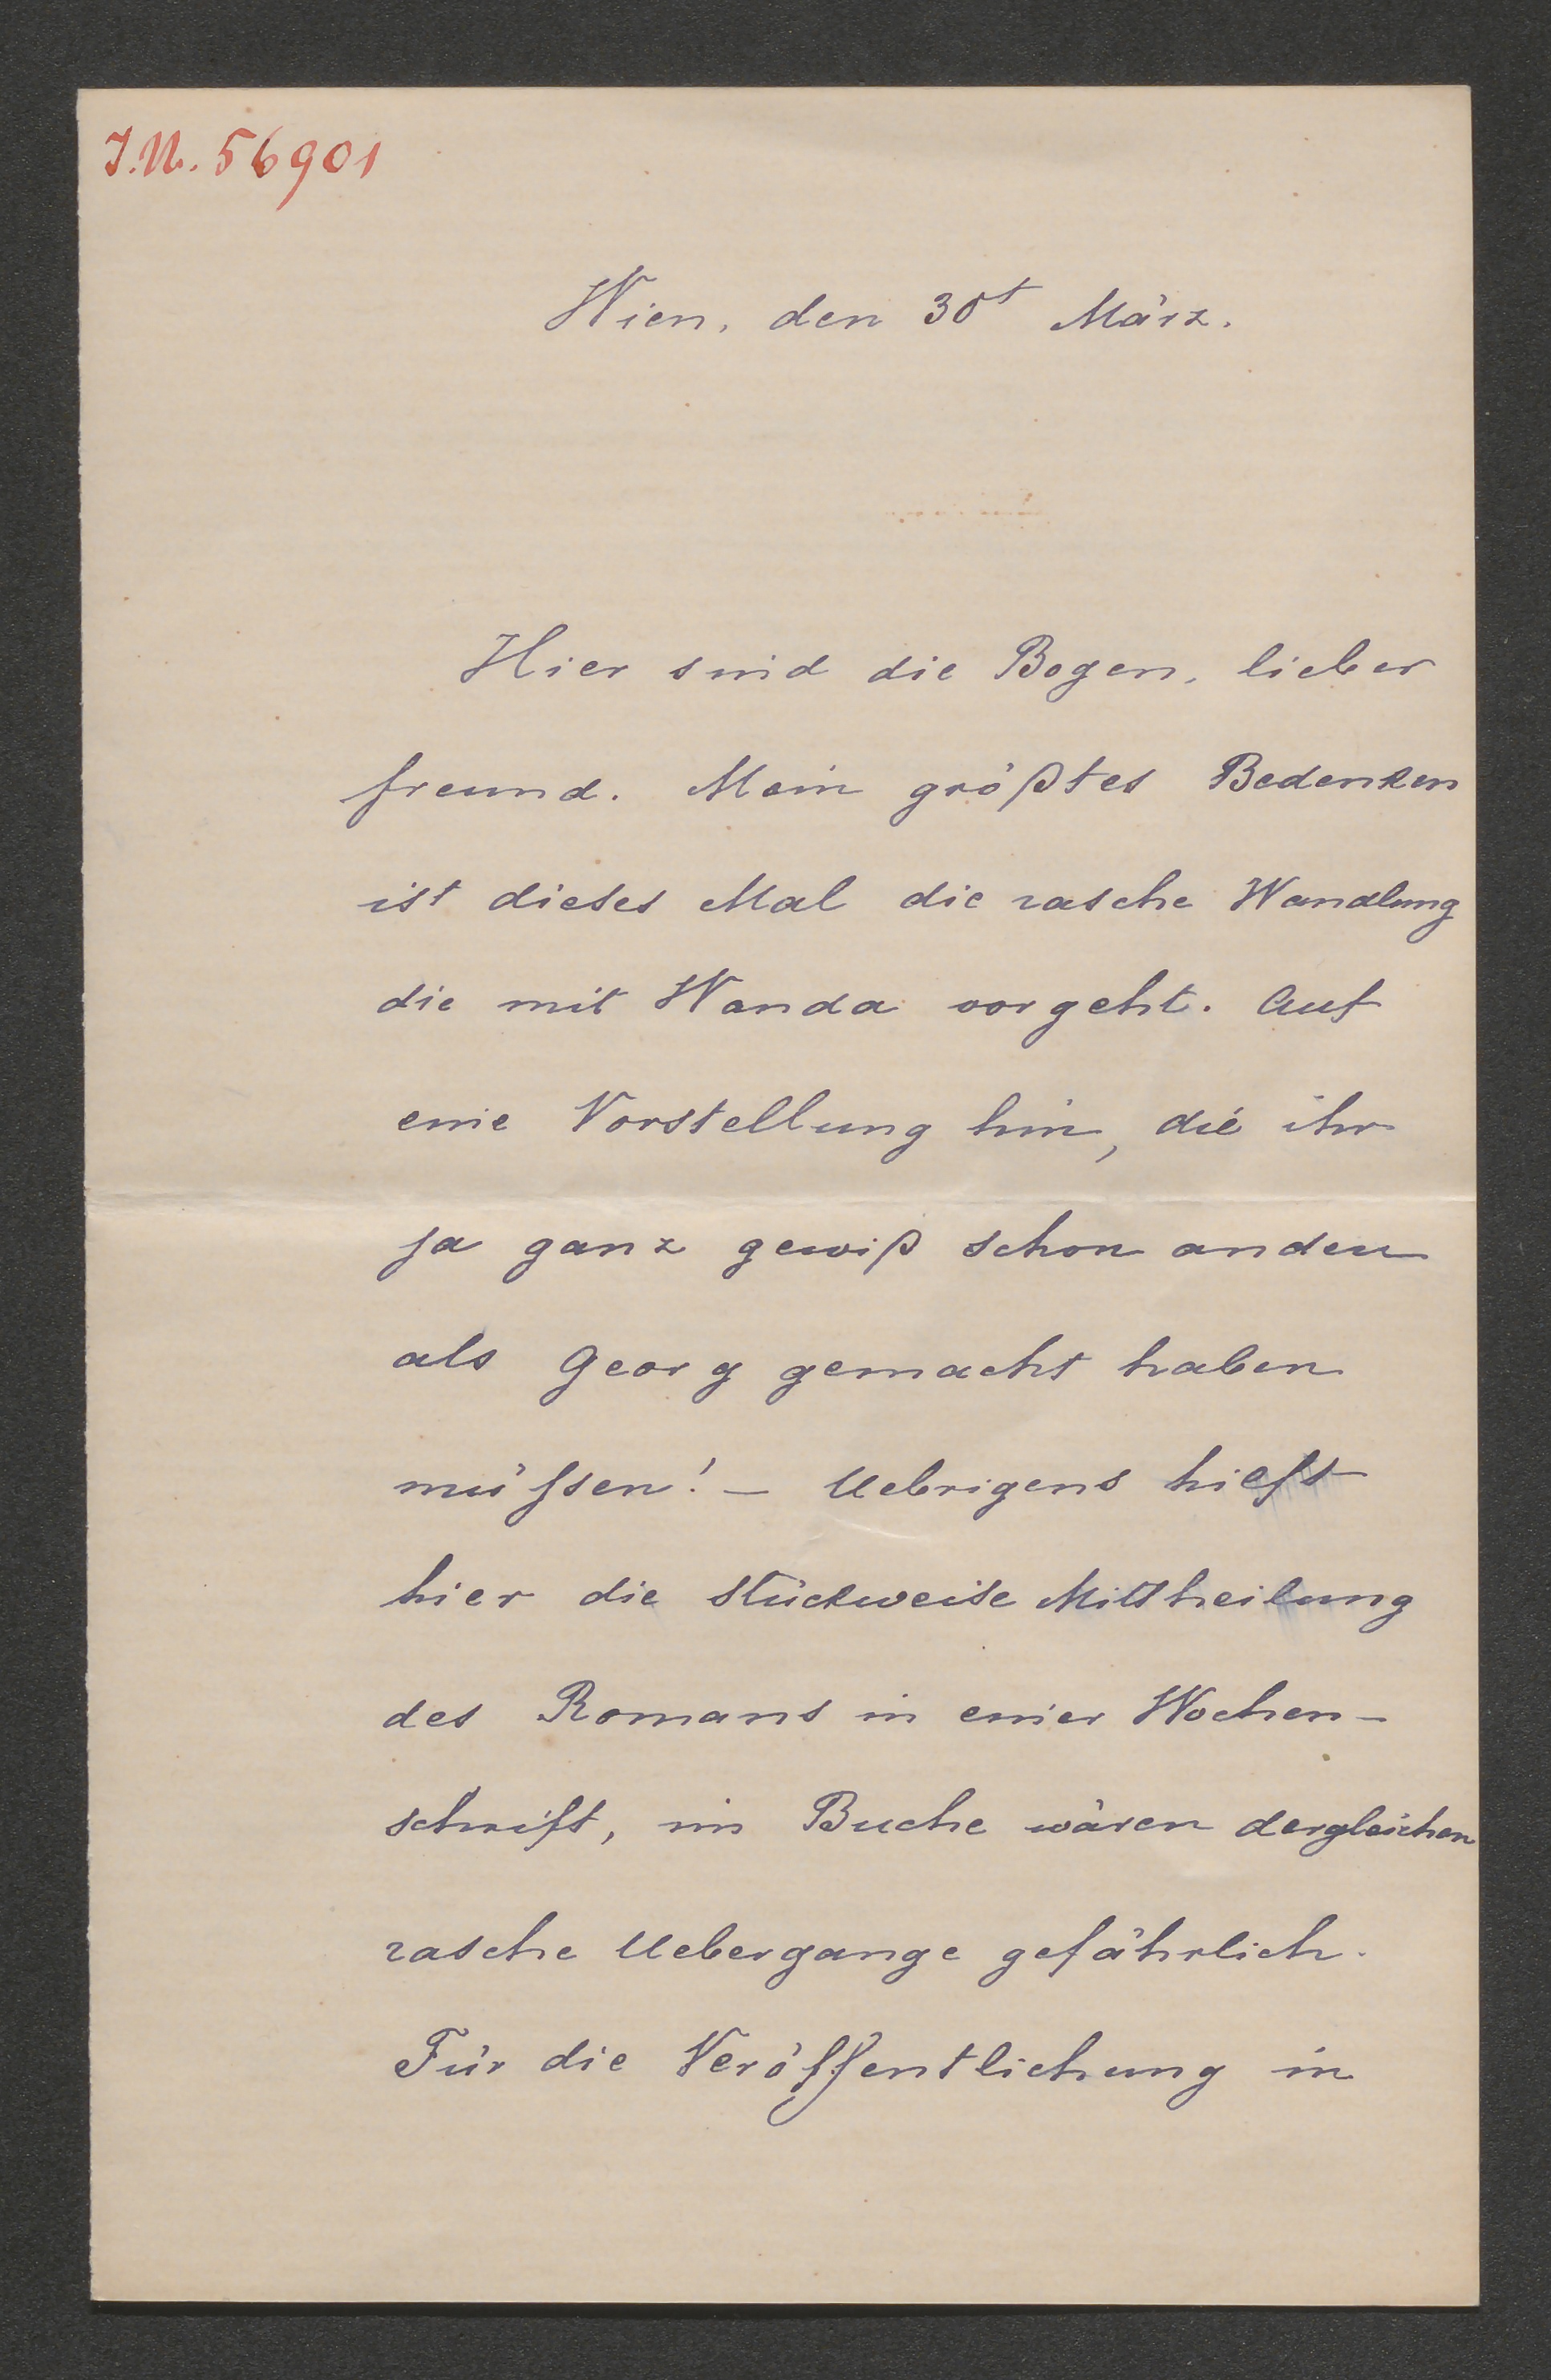 J.N. 56901
Wien, den 30t März.
Hier sind die Bogen, lieber
freund. Mein größtes Bedenken
ist dieses Mal die rasche Wandlung
die mit Wanda vorgeht. Auf
eine Vorstellung hin, die ihr
ja ganz gewiß schon andere
als Georg gemacht haben
müssen! – Uebrigens hilft
hier die stückweise Mittheilung
des Romans in einer Wochen-
schrift, im Buche wären dergleichen
rasche Uebergange gefährlich.
Für die Veröffentlichung in